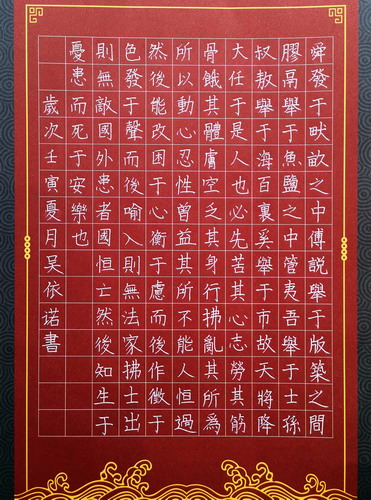 舜發于畎畝之中傅説舉于版築之間
膠鬲舉于魚鹽之中管夷吾舉于士孫
叔敖舉于海百裏奚舉于市故天將降
大任于是人也必先苦其心志勞其筋
骨餓其體膚空乏其身行拂亂其所爲
所以動心忍性曾益其所不能人恒過
然後能改困于心衡于慮而後作徵于
色發于聲而後喻入則無法家拂士出
則無敵國外患者國恒亡然後知生于
憂患而死于安樂也
歲次壬寅夏月吴依诺書